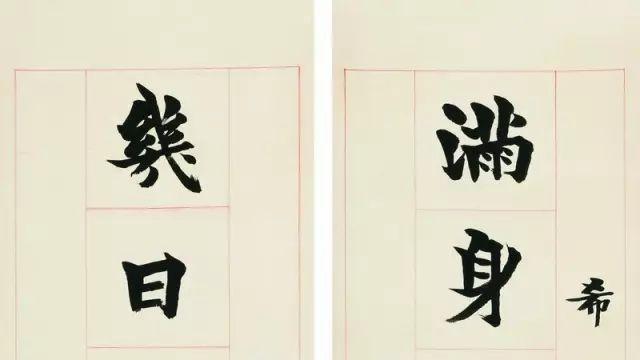 希
滿身
日